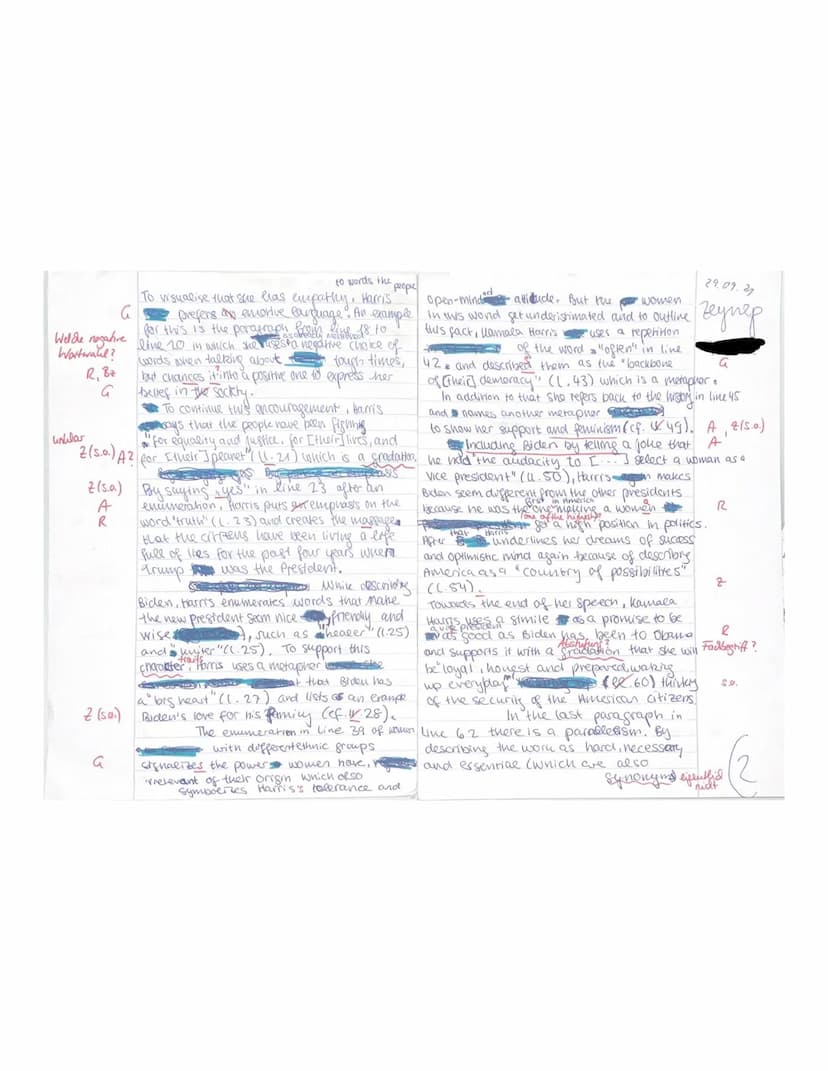 to words the people
To visualise that she has empathy, Harris
G
prefers an emotive language. An example
for this is the paragraph from line 18 to
Welche negative Wortwahl?
as already mentioned
line 20 in which she uses a negative choice of
words when talking about tough times,
R, Bz
but chances it into a positive one to express her
G
belief in the socity.
To continue this encouragement, Harris
says that the people have been fighting
unklar
"for equality and justice, for [their] lives, and
Z (s.o.) A?
for [their] planet" (l. 21) which is a gradation.
Z (s.o.)
By saying „yes" in line 23 after an
A
enumeration, Harris puts an emphasis on the
R
word "truth" (l. 23) and creates the massage
that the citizens have been living a life
full of lies for the past four years when
Trump was the President.
While describing
Biden, Harris enumerates words that make
the new president seem nice, friendly and
wise, such as "healer" (l. 25)
and "uniter" (l. 25). To support this
traits
character, Harris uses a metaphor
that Biden has
a "big heart" (l. 27) and lists as an exampe
Z (s.o.)
Biden's love for his family (cf. ll 28).
The enumeration in line 39 of women
with different ethnic groups
G
signalizes the power women have,
irrelevant of their origin which also
symbolizes Harris's tolerance and
29.09.21
zeynep
open-minded attitude. But the women
in this world get underistimated and to outline
this fact, Kamala Harris uses a repetition
of the word "often" in line
G
42 and described them as the "backbone
of [their] democracy" (l. 43) which is a metaphor.
In addition to that she refers back to the history in line 45
and names another metaphor
A, Z (s.o.)
to show her support and feminism (cf. ll 49).
A
Including Biden by telling a joke that
he had "the audacity to [...] select a woman as a
vice president" (l. 50), Harris makes
Biden seem different from the other presidents
first in America
R
because he was the one making a woman
(one of the highest)
get a high position in politics.
After that Harris underlines her dreams of sucess
and optimistic mind again because of describing
America as a "country of possibilitres"
Z
(l. 54).
Towards the end of her speech, Kamala
Harris uses a simile as a promise to be
R
a vice president
as good as Biden has been to Obama
Abstufung?
Fachbegriff?
and supports it with a gradation that she will
be "loyal, honest and prepared, waking
s.o.
up everyday" (l. 60) thinking
of the security of the American citizens.
In the last paragraph in
line 62 there is a parallelism. By
describing the work as hard, necessary
and essential (which are also
synonyms
eigentlich nicht
2